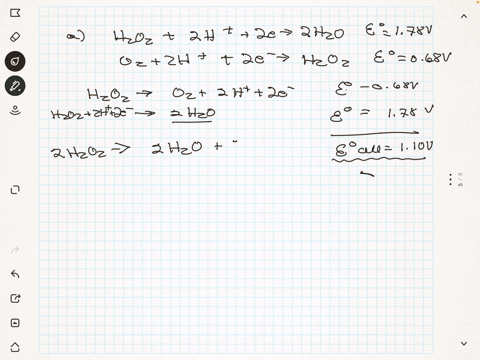 a) H₂O₂ + 2H⁺ + 2e → 2H₂O ℰ° = 1.78V
O₂ + 2H⁺ + 2e⁻ → H₂O₂ ℰ° = 0.68V
H₂O₂ → O₂ + 2H⁺ + 2e⁻ ℰ° -0.68V
H₂O₂ + 2H⁺ + 2e⁻ → 2H₂O ℰ° = 1.78 V
2H₂O₂ → 2H₂O + ℰ°cell = 1.10V